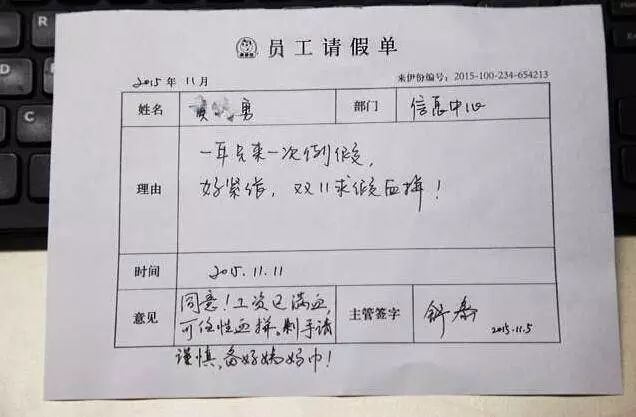 员工请假单
2015年11月 来伊份编号：2015-100-234-654213
姓名 黄 勇 部门 信息中心
一年只来一次例假,
理由 好紧张，双11求假血拼！
时间 2015.11.11
同意！工资已满血,
意见 可任性血拼。剁手请 主管签字 2015.11.5
谨慎,备好姨妈巾！